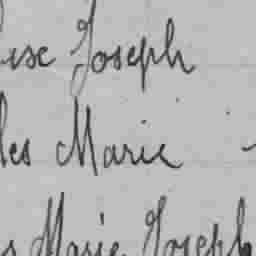 Joseph
les Marie
Marie Joseph